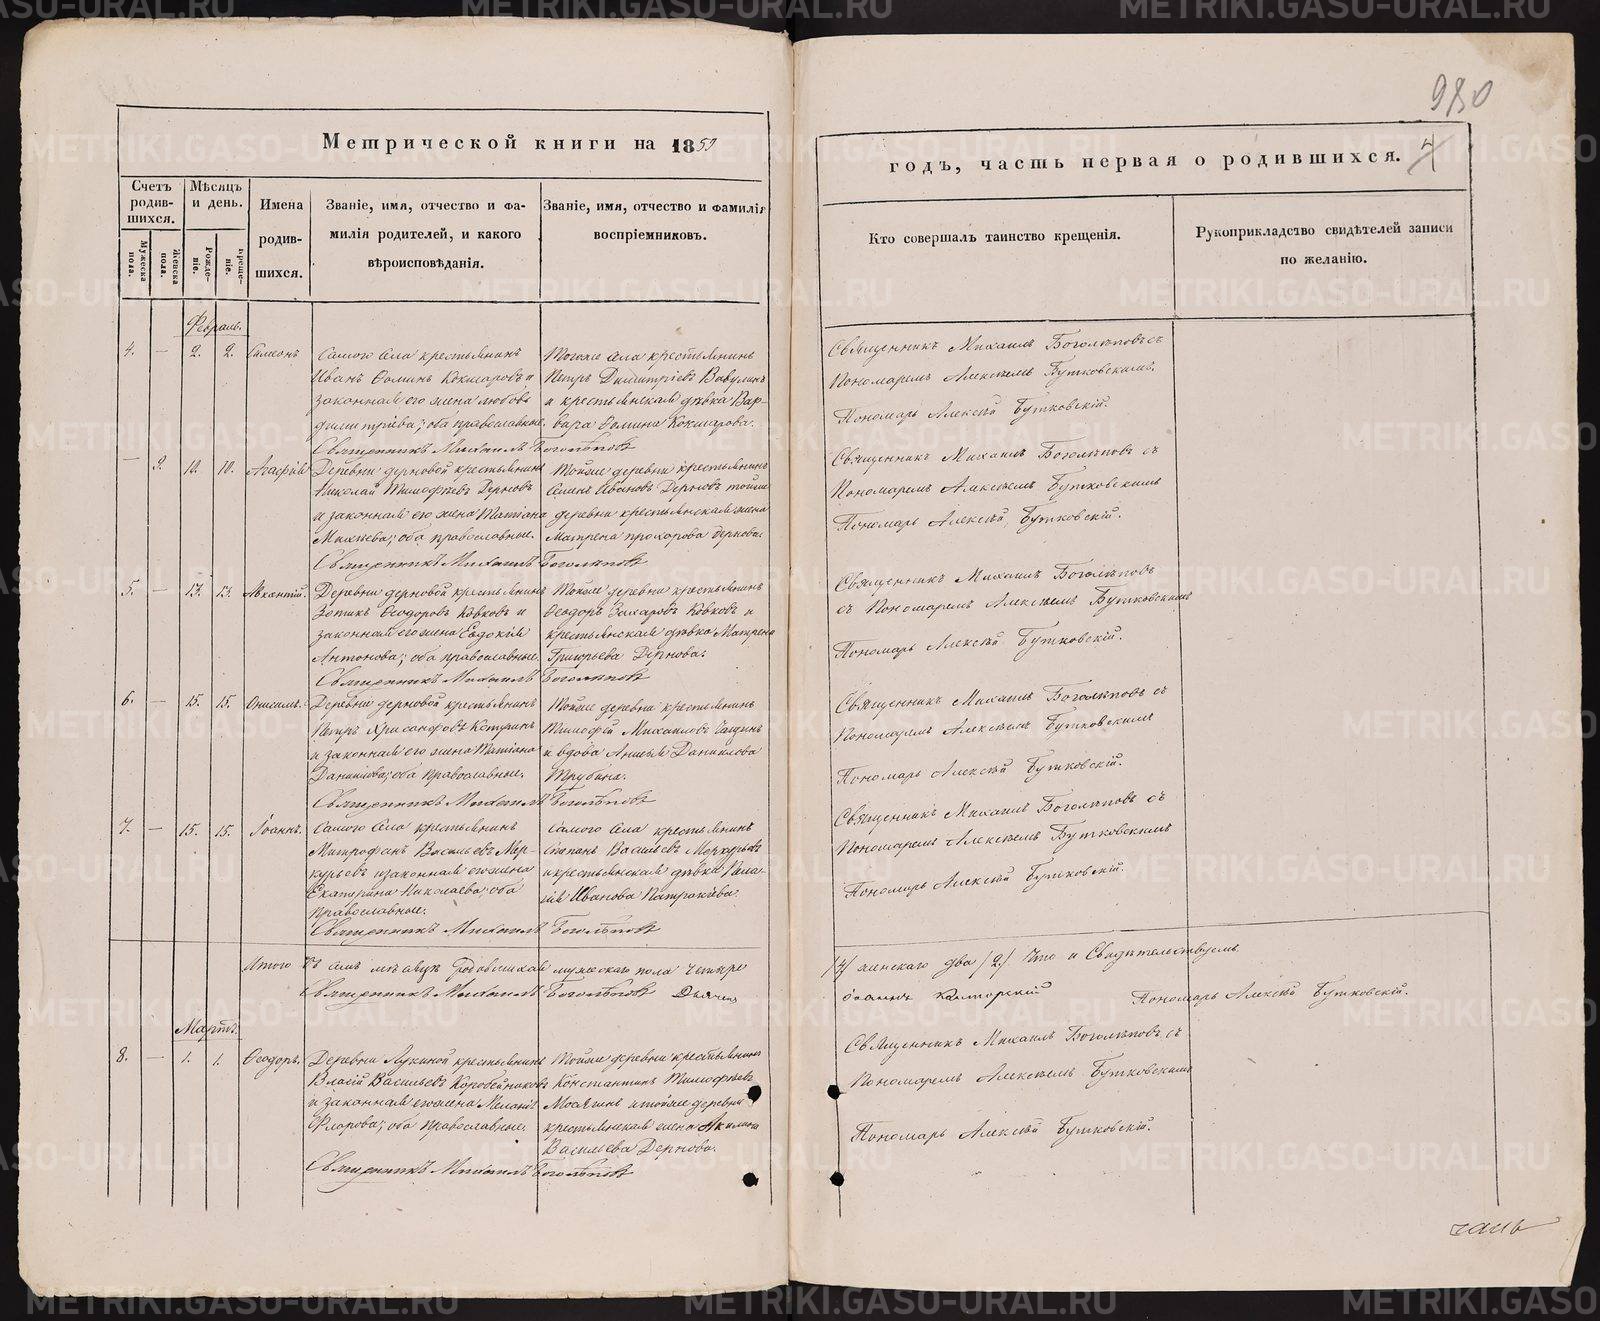 980
Метрической книги на 1859
годъ, часть первая о родившихся. 4
Счетъ родив-шихся.
Мѣсяцъ и день.
Имена родив-шихся.
Званіе, имя, отчество и фа-
милія родителей, и какого
вѣроисповѣданія.
Званіе, имя, отчество и фамилія
воспріемниковъ.
Кто совершалъ таинство крещенія.
Рукоприкладство свидѣтелей записи
по желанію.
Мужеска пола.
Женска пола.
Рожде-ніе.
Креще-ніе.
Февраль.
4. — 2. 2. Симеонъ
Самого села крестьянинъ
Иванъ Ѳоминъ Кокшаровъ и
законная его жена Любовь
Димитріева; оба православные.
Тогоже села крестьянинъ
Петръ Димитріевъ Вавулинъ
и крестьянская дѣвка Вар-
вара Ѳомина Кокшарова.
Священникъ Михаилъ Боголѣповъ
Священникъ Михаилъ Боголѣповъ съ
Пономаремъ Алексѣемъ Бутковскимъ.
Пономарь Алексѣй Бутковскій.
— 10. 10. Агафія
Деревни Дерновой крестьянинъ
Николай Тимофѣевъ Дерновъ
и законная его жена Татіана
Михѣева; оба православные.
Тойже деревни крестьянинъ
Семенъ Ивановъ Дерновъ тойже
деревни крестьянская жена
Матрена Прохорова Дернова.
Священникъ Михаилъ Боголѣповъ
Священникъ Михаилъ Боголѣповъ съ
Пономаремъ Алексѣемъ Бутковскимъ
Пономарь Алексѣй Бутковскій.
5. — 13. 13. Авксентій.
Деревни Дерновой крестьянинъ
Зотикъ Ѳеодоровъ Ковковъ и
законная его жена Евдокія
Антонова; оба православные.
Тойже деревни крестьянинъ
Ѳеодоръ Захаровъ Ковковъ и
крестьянская дѣвка Матрена
Григорьева Дернова.
Священникъ Михаилъ Боголѣповъ
Священникъ Михаилъ Боголѣповъ
съ Пономаремъ Алексѣемъ Бутковскимъ
Пономарь Алексѣй Бутковскій.
6. — 15. 15. Онисимъ.
Деревни Дерновой крестьянинъ
Петръ Хрисанфовъ
и законная его жена Татіана
Данилова; оба православные.
Тойже деревни крестьянинъ
Тимофѣй Михаиловъ
и вдова Анисья Данилова
Трубина.
Священникъ Михаилъ Боголѣповъ
Священникъ Михаилъ Боголѣповъ съ
Пономаремъ Алексѣемъ Бутковскимъ
Пономарь Алексѣй Бутковскій.
7. — 15. 15. Іоаннъ.
Самого села крестьянинъ
Митрофанъ Васильевъ Мер-
курьевъ и законная его жена
Екатерина Николаева; оба
православные.
Самого села крестьянинъ
Степанъ Васильевъ Меркурьевъ
и крестьянская дѣвка Пела-
гія Иванова Патракѣева.
Священникъ Михаилъ Боголѣповъ
Священникъ Михаилъ Боголѣповъ съ
Пономаремъ Алексѣемъ Бутковскимъ
Пономарь Алексѣй Бутковскій.
Итого въ семъ мѣсяцѣ родившихся мужескаго пола четыре
/4/ женскаго два /2/ Что и Свидѣтельствуемъ
Священникъ Михаилъ Боголѣповъ Дьячекъ
Іоаннъ Пономарь Алексѣй Бутковскій.
Мартъ.
8. — 1. 1. Ѳеодоръ.
Деревни Лукиной крестьянинъ
Власій Васильевъ Коробейниковъ
и законная его жена Меланія
Фларова; оба православные.
Тойже деревни крестьянинъ
Константинъ Тимофѣевъ
Мосягинъ и тойже деревни
крестьянская жена Акилина
Васильева Дернова.
Священникъ Михаилъ Боголѣповъ
Священникъ Михаилъ Боголѣповъ съ
Пономаремъ Алексѣемъ Бутковскимъ
Пономарь Алексѣй Бутковскій.
METRIKI.GASO-URAL.RU